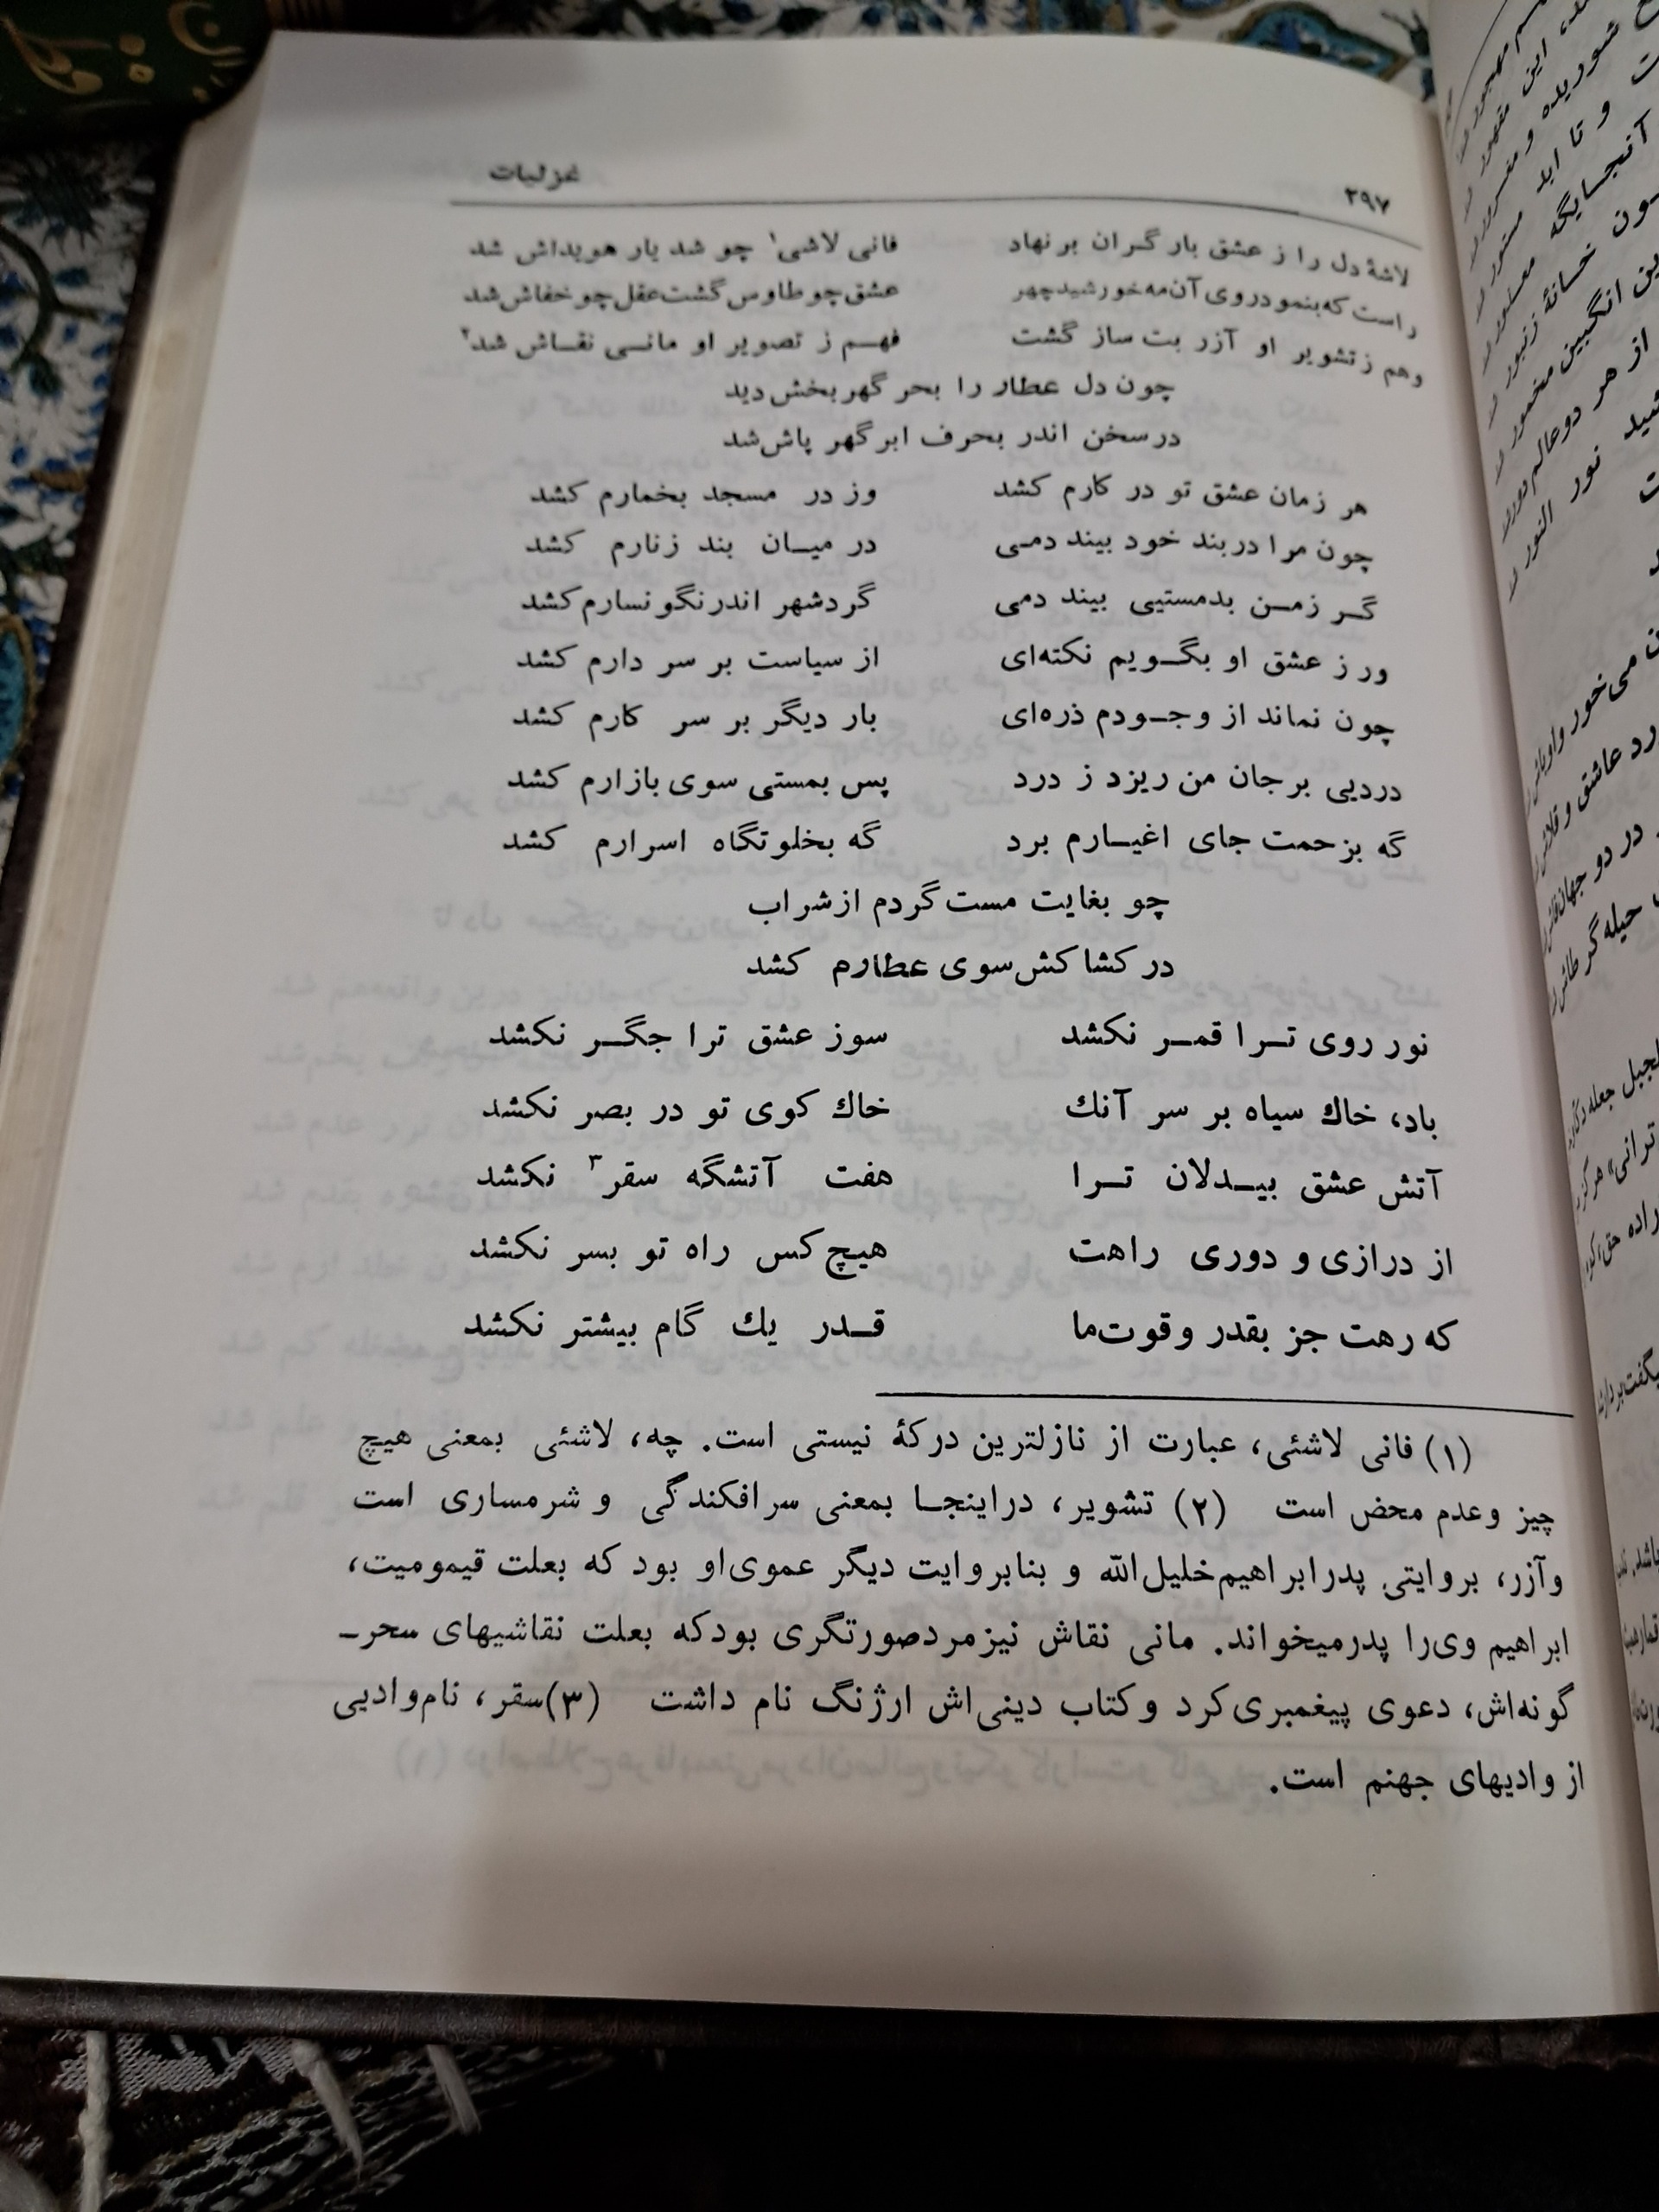 غزلیات
۲۹۷
لاشهٔ دل را ز عشق بار گران بر نهاد فانی لاشی۱ چو شد یار هویداش شد
راست که بنمود روی آن مه خورشید چهر عشق چو طاوس گشت عقل چو خفاش شد
وهم ز تشویر او آزر بت ساز گشت فهم ز تصویر او مانی نقاش شد۲
چون دل عطار را بحر گهر بخش دید
در سخن اندر بحرف ابر گهر پاش شد
هر زمان عشق تو در کارم کشد وز در مسجد بخمارم کشد
چون مرا در بند خود بیند دمی در میان بند زنارم کشد
گر ز من بدمستیی بیند دمی گرد شهر اندر نگو نسارم کشد
ور ز عشق او بگویم نکته‌ای از سیاست بر سر دارم کشد
چون نماند از وجودم ذره‌ای بار دیگر بر سر کارم کشد
دردیی بر جان من ریزد ز درد پس بمستی سوی بازارم کشد
گه بزحمت جای اغیارم برد گه بخلوتگاه اسرارم کشد
چو بغایت مست گردم از شراب
در کشاکش سوی عطارم کشد
نور روی ترا قمر نکشد سوز عشق ترا جگر نکشد
باد، خاك سیاه بر سر آنك خاك کوی تو در بصر نکشد
آتش عشق بیدلان ترا هفت آتشگه سقر۳ نکشد
از درازی و دوری راهت هیچ کس راه تو بسر نکشد
که رهت جز بقدر و قوت ما قدر یك گام بیشتر نکشد
(۱) فانی لاشئی، عبارت از نازلترین درکهٔ نیستی است. چه، لاشئی بمعنی هیچ
چیز و عدم محض است (۲) تشویر، در اینجا بمعنی سر افکندگی و شرمساری است
و آزر، بروایتی پدر ابراهیم خلیل الله و بنابروایت دیگر عموی او بود که بعلت قیمومیت،
ابراهیم وی را پدر میخواند. مانی نقاش نیز مرد صورتگری بود که بعلت نقاشیهای سحر-
گونه‌اش، دعوی پیغمبری کرد و کتاب دینی‌اش ارژنگ نام داشت (۳) سقر، نام وادیی
از وادیهای جهنم است.